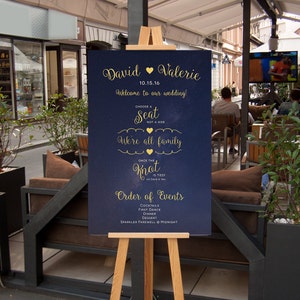 David ♥ Valerie
10.15.16
Welcome to our wedding!
CHOOSE A
Seat
NOT A SIDE
We're all family
ONCE THE
Knot
IS TIED
Order of Events
COCKTAILS
FIRST DANCE
DINNER
DESSERT
SPARKLER FAREWELL @ MIDNIGHT